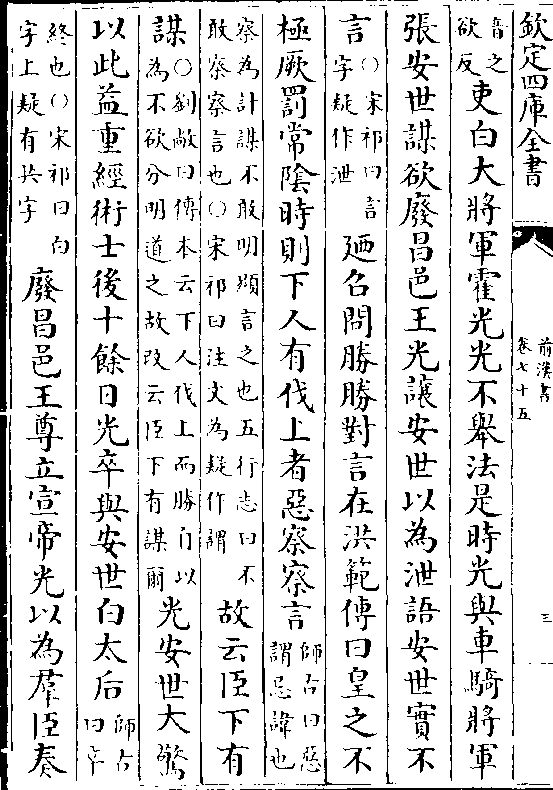 欽定四庫全書
前漢書
卷七十五
三
音之
欲反
吏白大將軍霍光光不舉法是時光與車騎將軍
張安世謀欲廢昌邑王光讓安世以為泄語安世實不
言
○宋祁曰言
字疑作泄
廼召問勝勝對言在洪範傳曰皇之不
極厥罰常陰時則下人有伐上者惡察察言
師古曰惡
謂忌諱也
察為計謀不敢明顯言之也五行志曰不
敢察察言也○宋祁曰注文為疑作謂
故云臣下有
謀
○劉敞曰傳本云下人伐上而勝自以
為不欲分明道之故改云臣下有謀爾
光安世大驚
以此益重經術士後十餘日光卒與安世白太后
師古
曰卒
終也○宋祁曰白
字上疑有共字
廢昌邑王尊立宣帝光以為羣臣奏